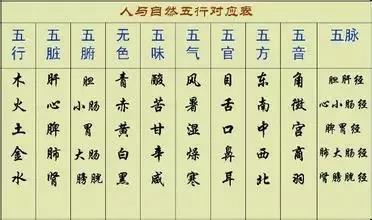 人与自然五行对应表
五行 五脏 五腑 五色 五味 五气 五官 五方 五音 五脉
木 肝 胆 青 酸 风 目 东 角 胆肝经
火 心 小肠 赤 苦 暑 舌 南 徵 心小肠经
土 脾 胃 黄 甘 湿 口 中 宫 脾胃经
金 肺 大肠 白 辛 燥 鼻 西 商 肺大肠经
水 肾 膀胱 黑 咸 寒 耳 北 羽 肾膀胱经